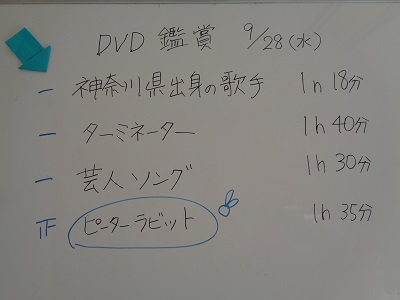 DVD 鑑賞 9/28(水)
一 神奈川県出身の歌手 1h 18分
一 ターミネーター 1h 40分
一 芸人ソング 1h 30分
正 ピーターラビット 1h 35分